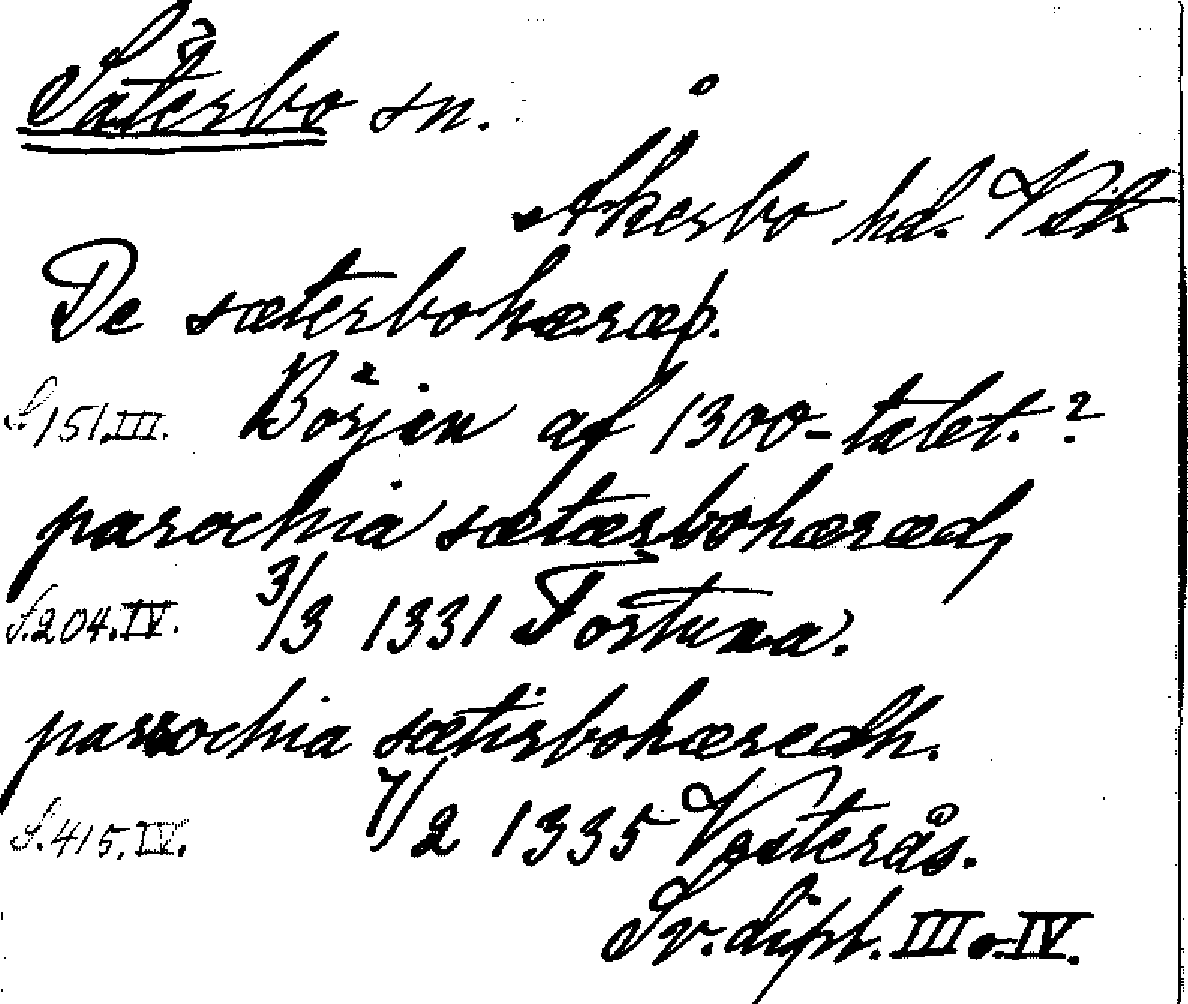 Säterbo sn.
Åkerbo hd. Vstm.
De sæterbohæræþ.
S. 151. III. Börjen af 1300-talet.?
parochia sætærbohæræd,
S. 204. IV. 3/3 1331 Fortuna.
parrochia sætirbohæredh.
S. 415. IV. 7/2 1335 Vesterås.
Sv. dipl. III o. IV.